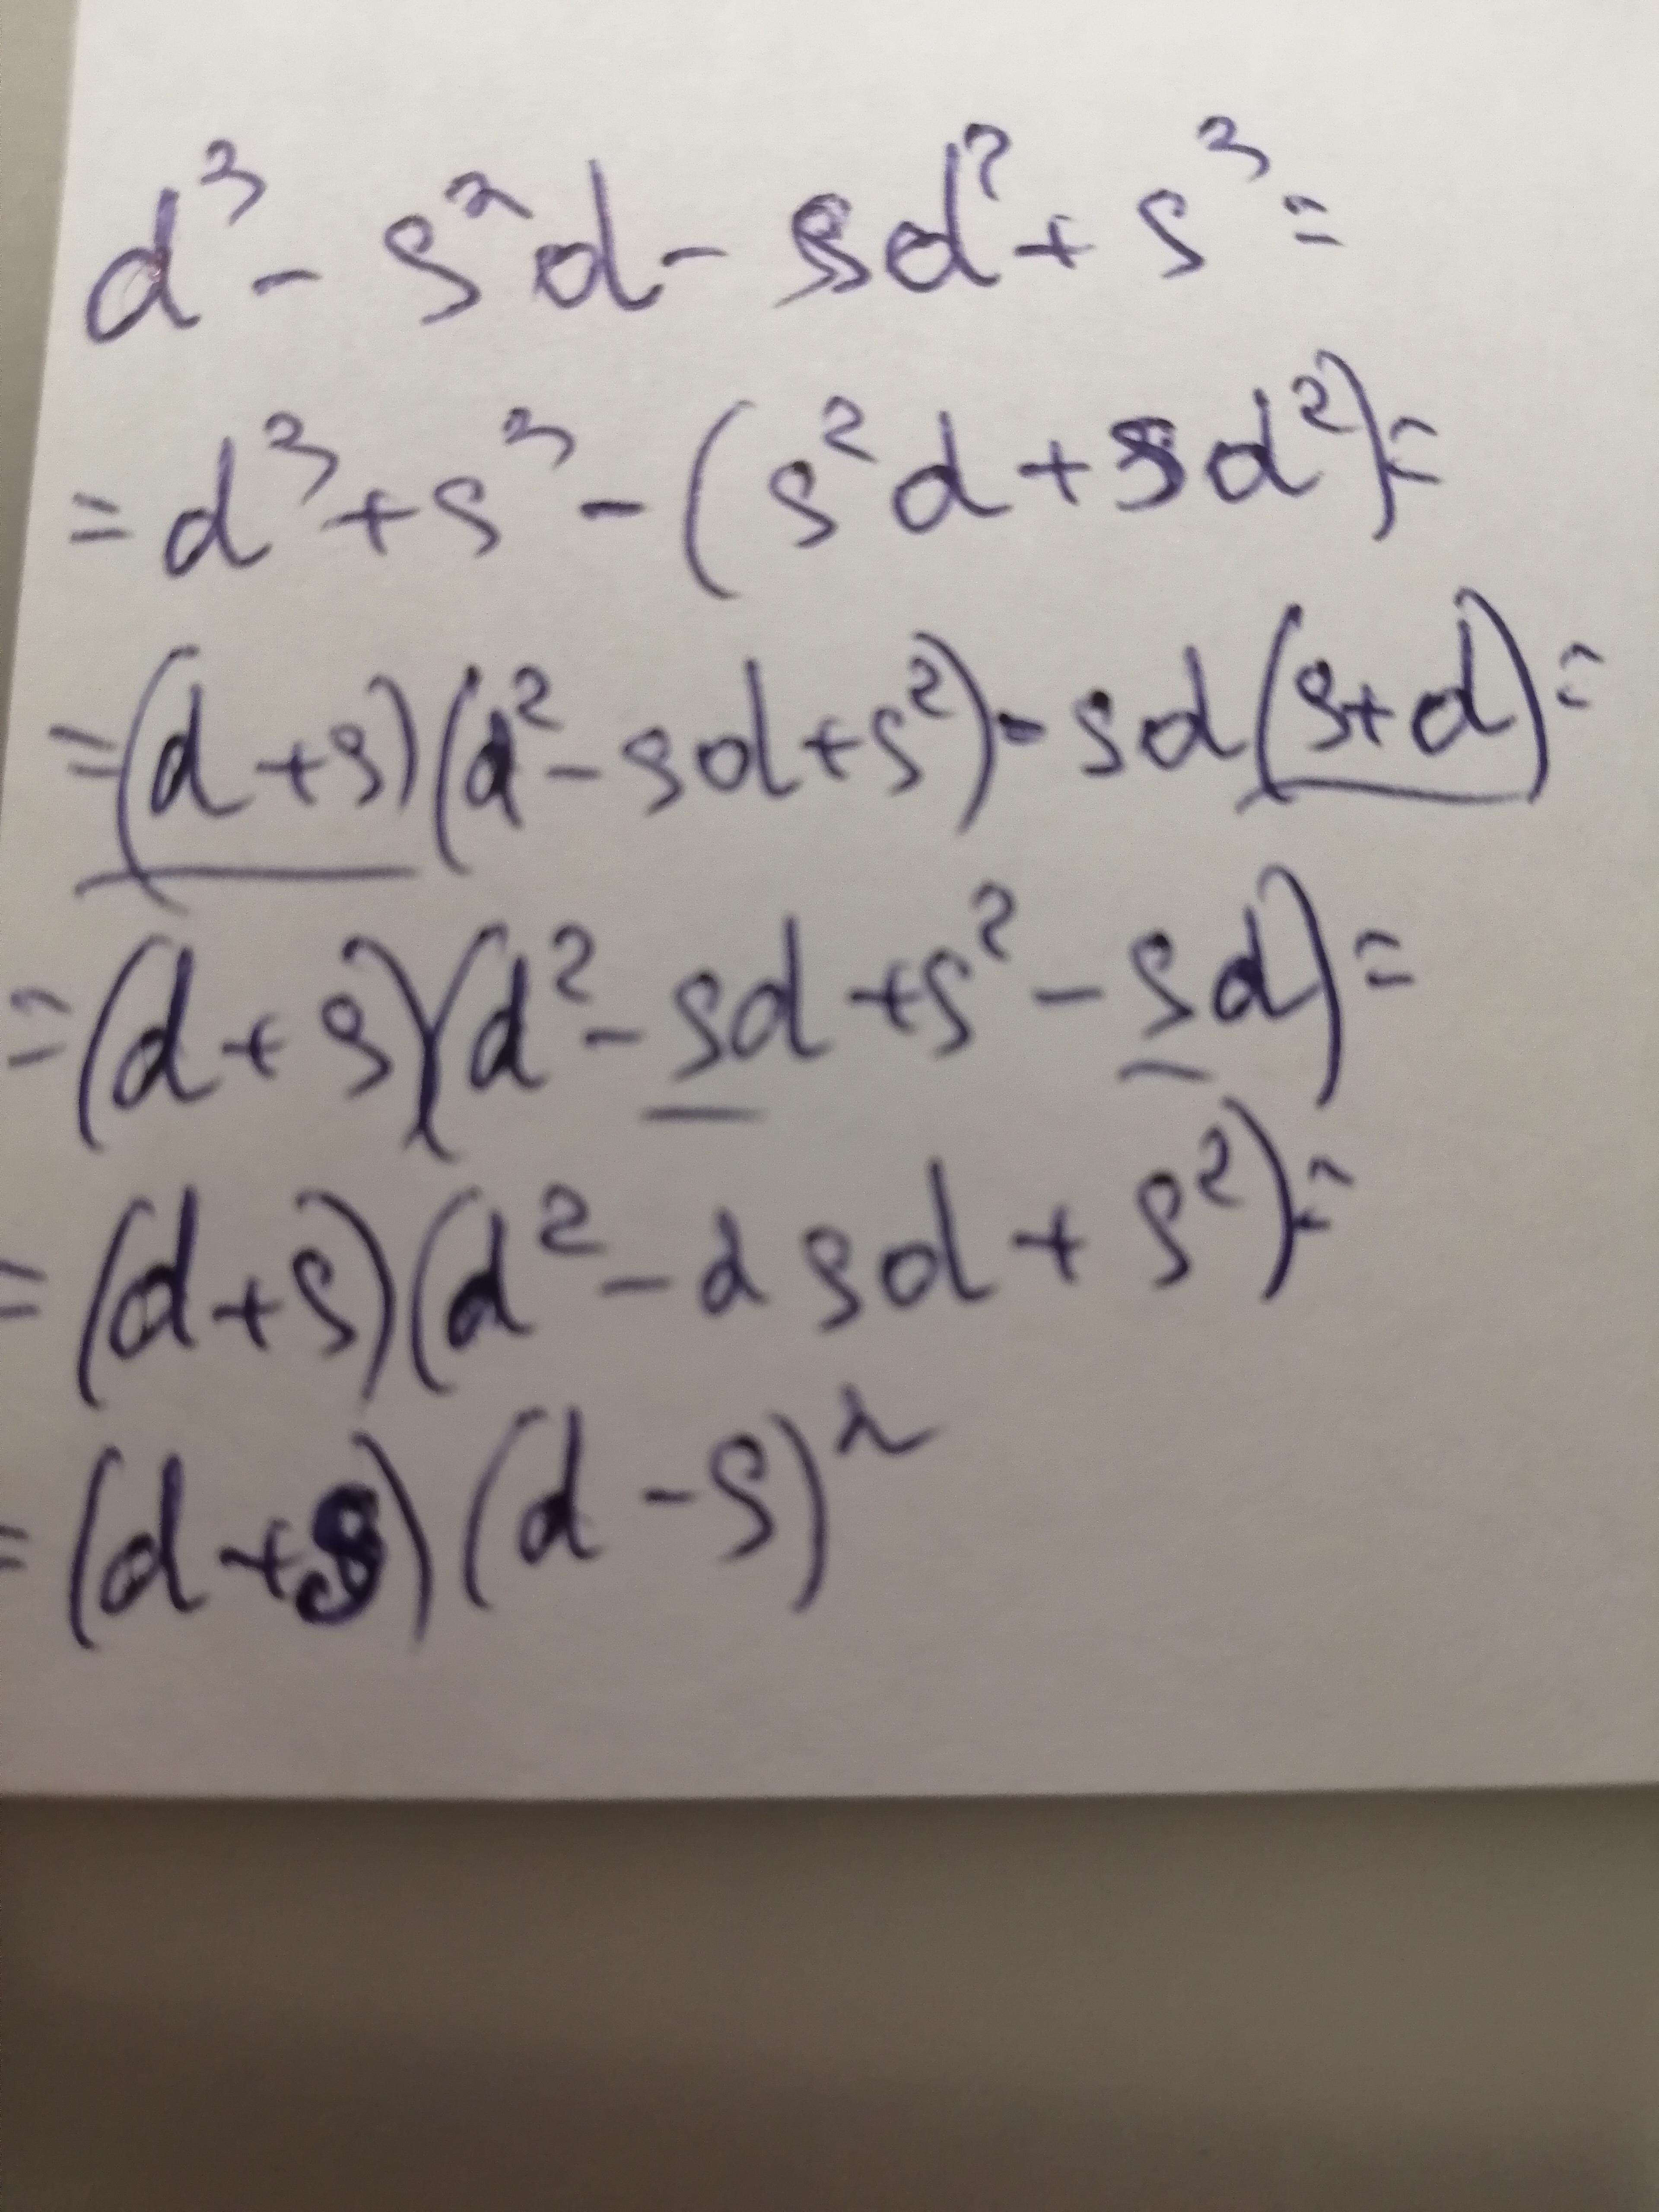 d³ - s²d - sd² + s³ =
= d³ + s³ - (s²d + sd²) =
= (d + s)(d² - sd + s²) - sd(s + d) =
= (d + s)(d² - sd + s² - sd) =
= (d + s)(d² - 2sd + s²) =
= (d + s)(d - s)²